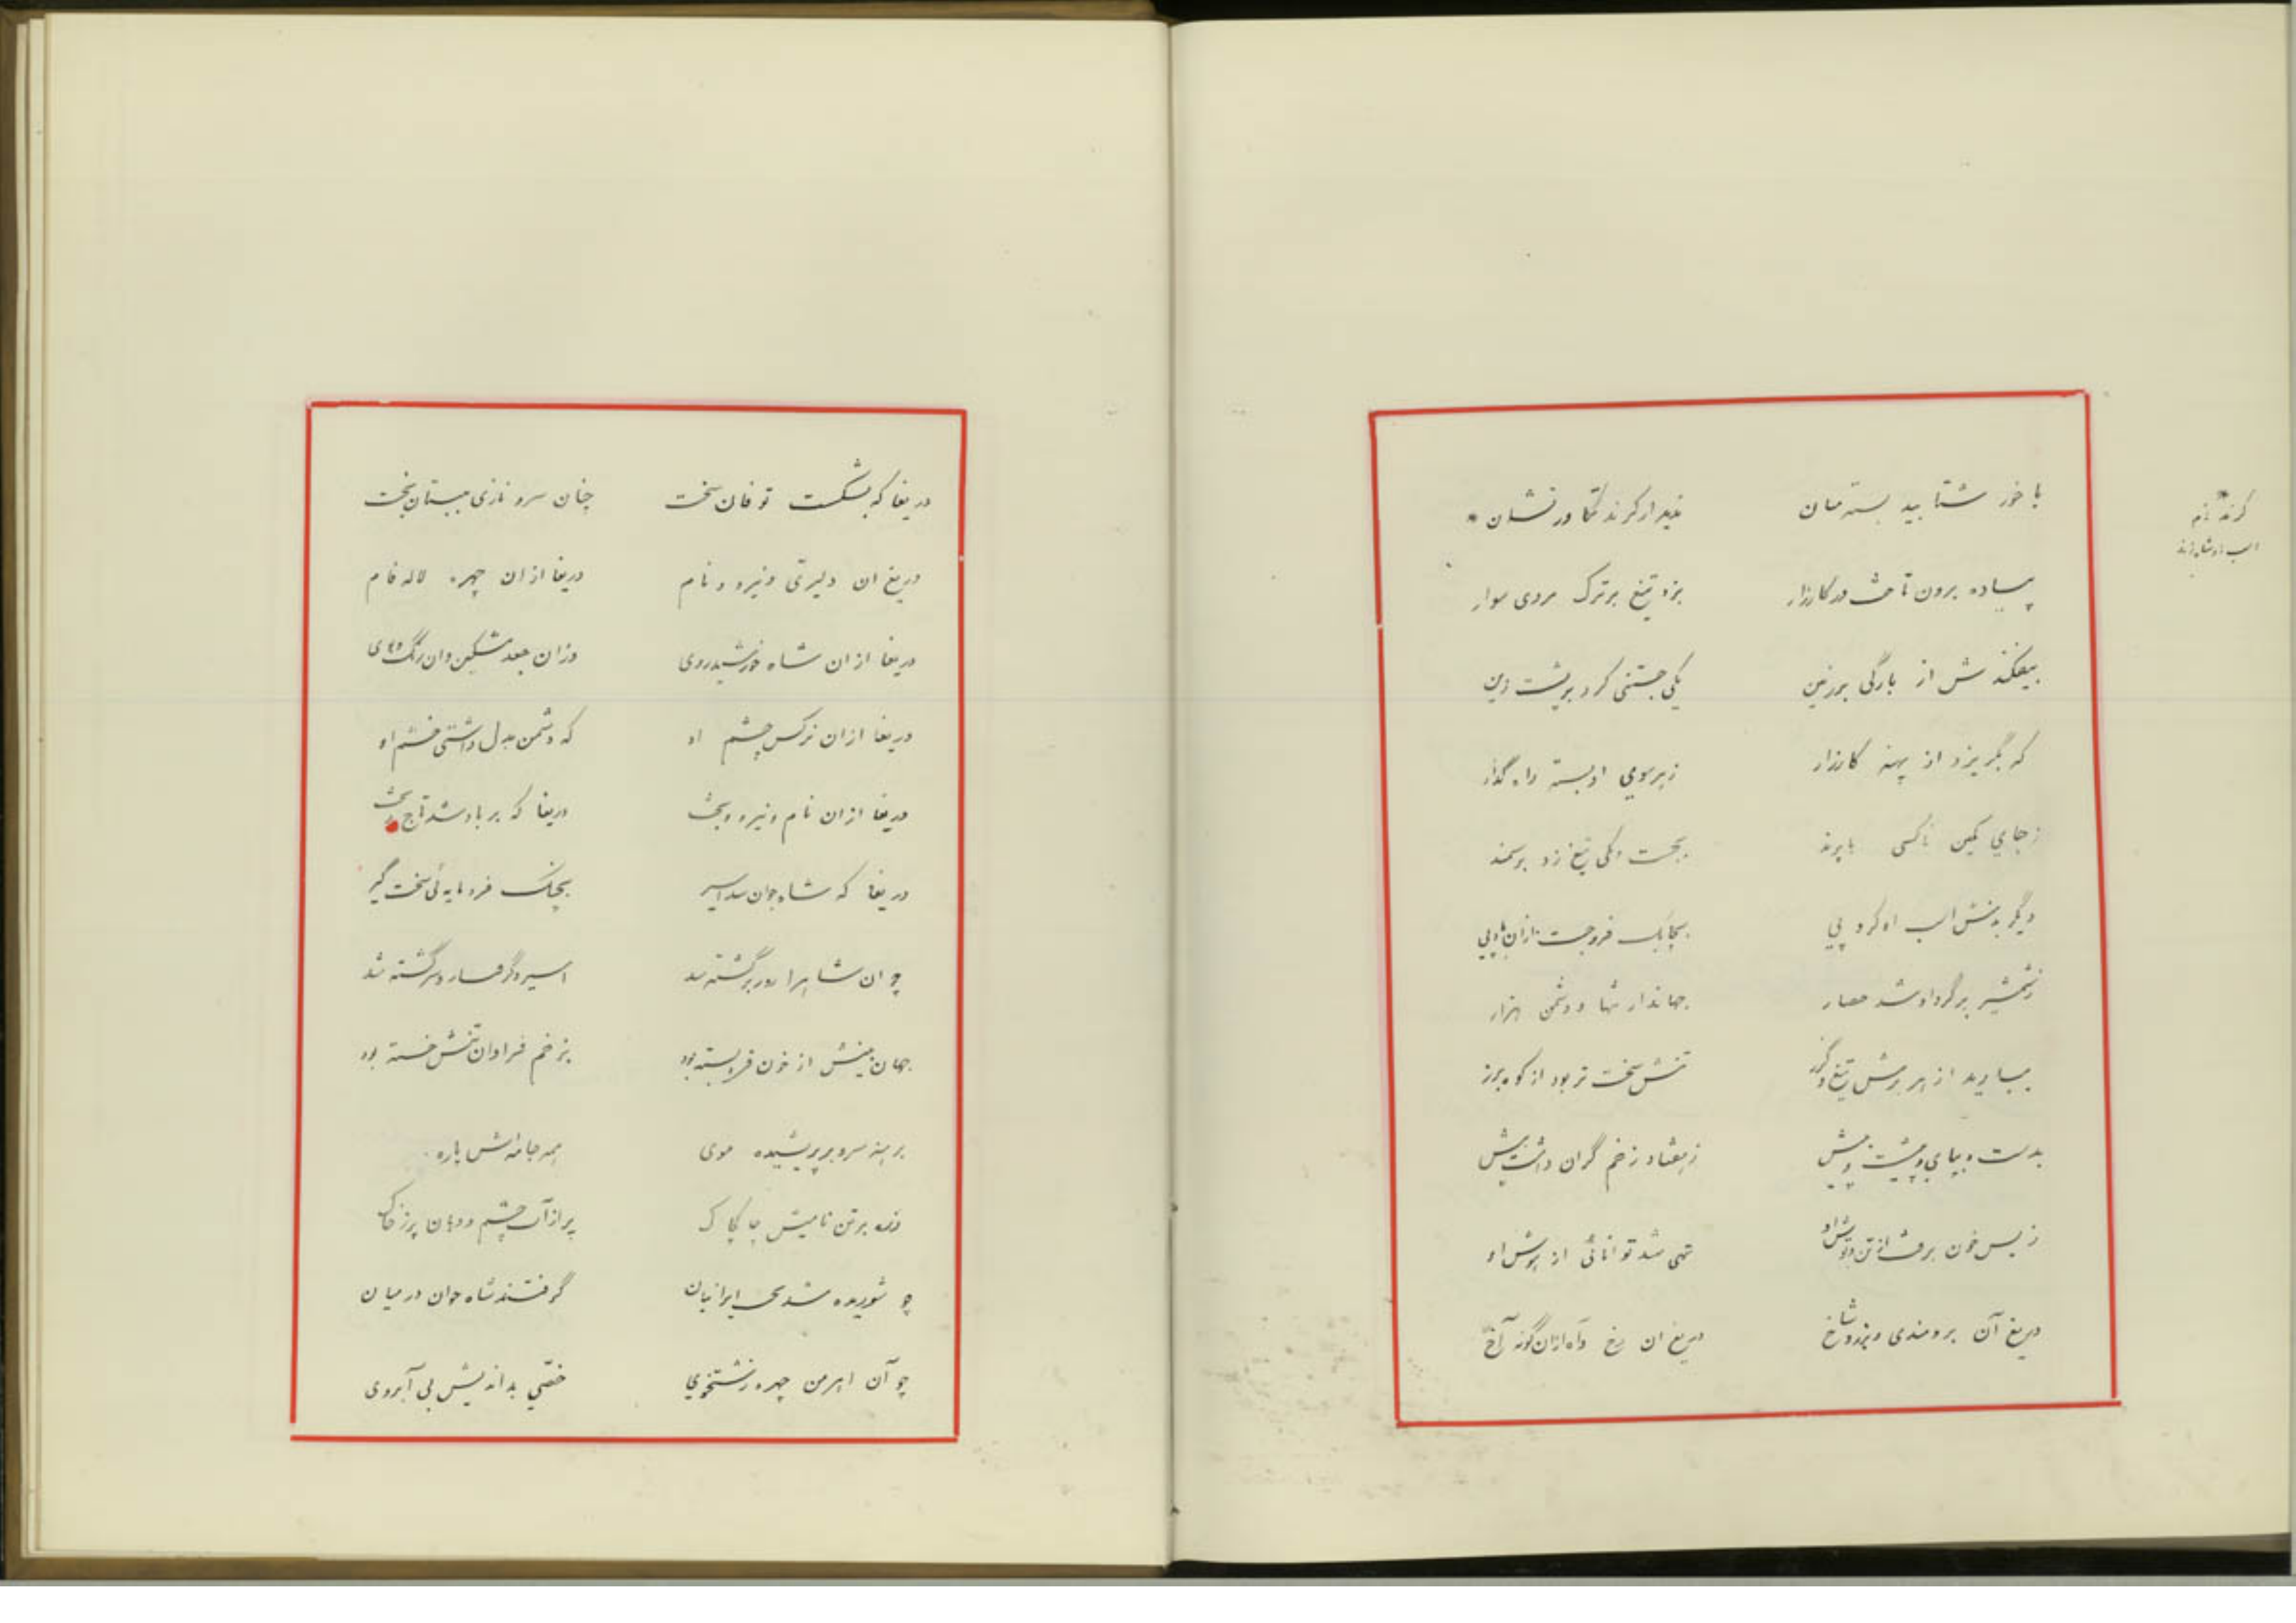 با خور شتابید بسته میان ندید از کرند تکاور نشان *
* کرند نام
اسب او شاه زند
پیاده برون تاخت در کارزار بزد تیغ بر ترک مردی سوار
بیفکندش از بارگی بر زمین یکی جستنی کرد بر پشت زین
که بگریزد از پهنه کارزار زهر سوی او بسته راه گذار
زجای کمین ناکسی بجست و یکی تیغ زد بر سمند
دیگر اسب او کرد پی بچابک فروجست ازان بادپی
زشمشیر بر گرد او شد حصار جهاندار تنها و دشمن هزار
ببارید از هر برش تیغ و گرز تنش سخت تر بود از کوه برز
بدست و بپای و پشت و پیش زهفتاد زخم گران داشت بیش
زبس خون برفت از تن و توش او تهی شد توانائی از هوش او
دریغ آن برومندی و برز و شاخ دریغ ان رخ و آه ازان گونه آخ
دریغا که بشکست توفان سخت چنان سرو نازی ببستان بخت
دریغ ان دلیری و نیرو و نام دریغا ازان چهره لاله فام
دریغا ازان شاه خورشیدروی وزان جعد مشکین وان رنگ و بوی
دریغا ازان نرکس چشم او که دشمن بدل داشتی خشم او
دریغا ازان نام و نیرو و بخت دریغا که بر باد شد تاج و تخت
دریغا که شاه جوان شد اسیر بچنگ فرومایه ئی سخت گیر
چو ان شاه را روز برگشته شد اسیر و گرفتار و سرگشته شد
جهان بینش از خون فروبسته بود بزخم فراوان تنش خسته بود
برهنه سر و بر پریشیده موی همه جامه اش پاره
زره بر تن نامیش چاکچاک پر از آب چشم و دهان پر ز خاک
چو شوریده شد بخت ایرانیان گرفتند شاه جوان در میان
چو آن اهرمن چهره زشتخوی خصی بداندیش بی آبروی